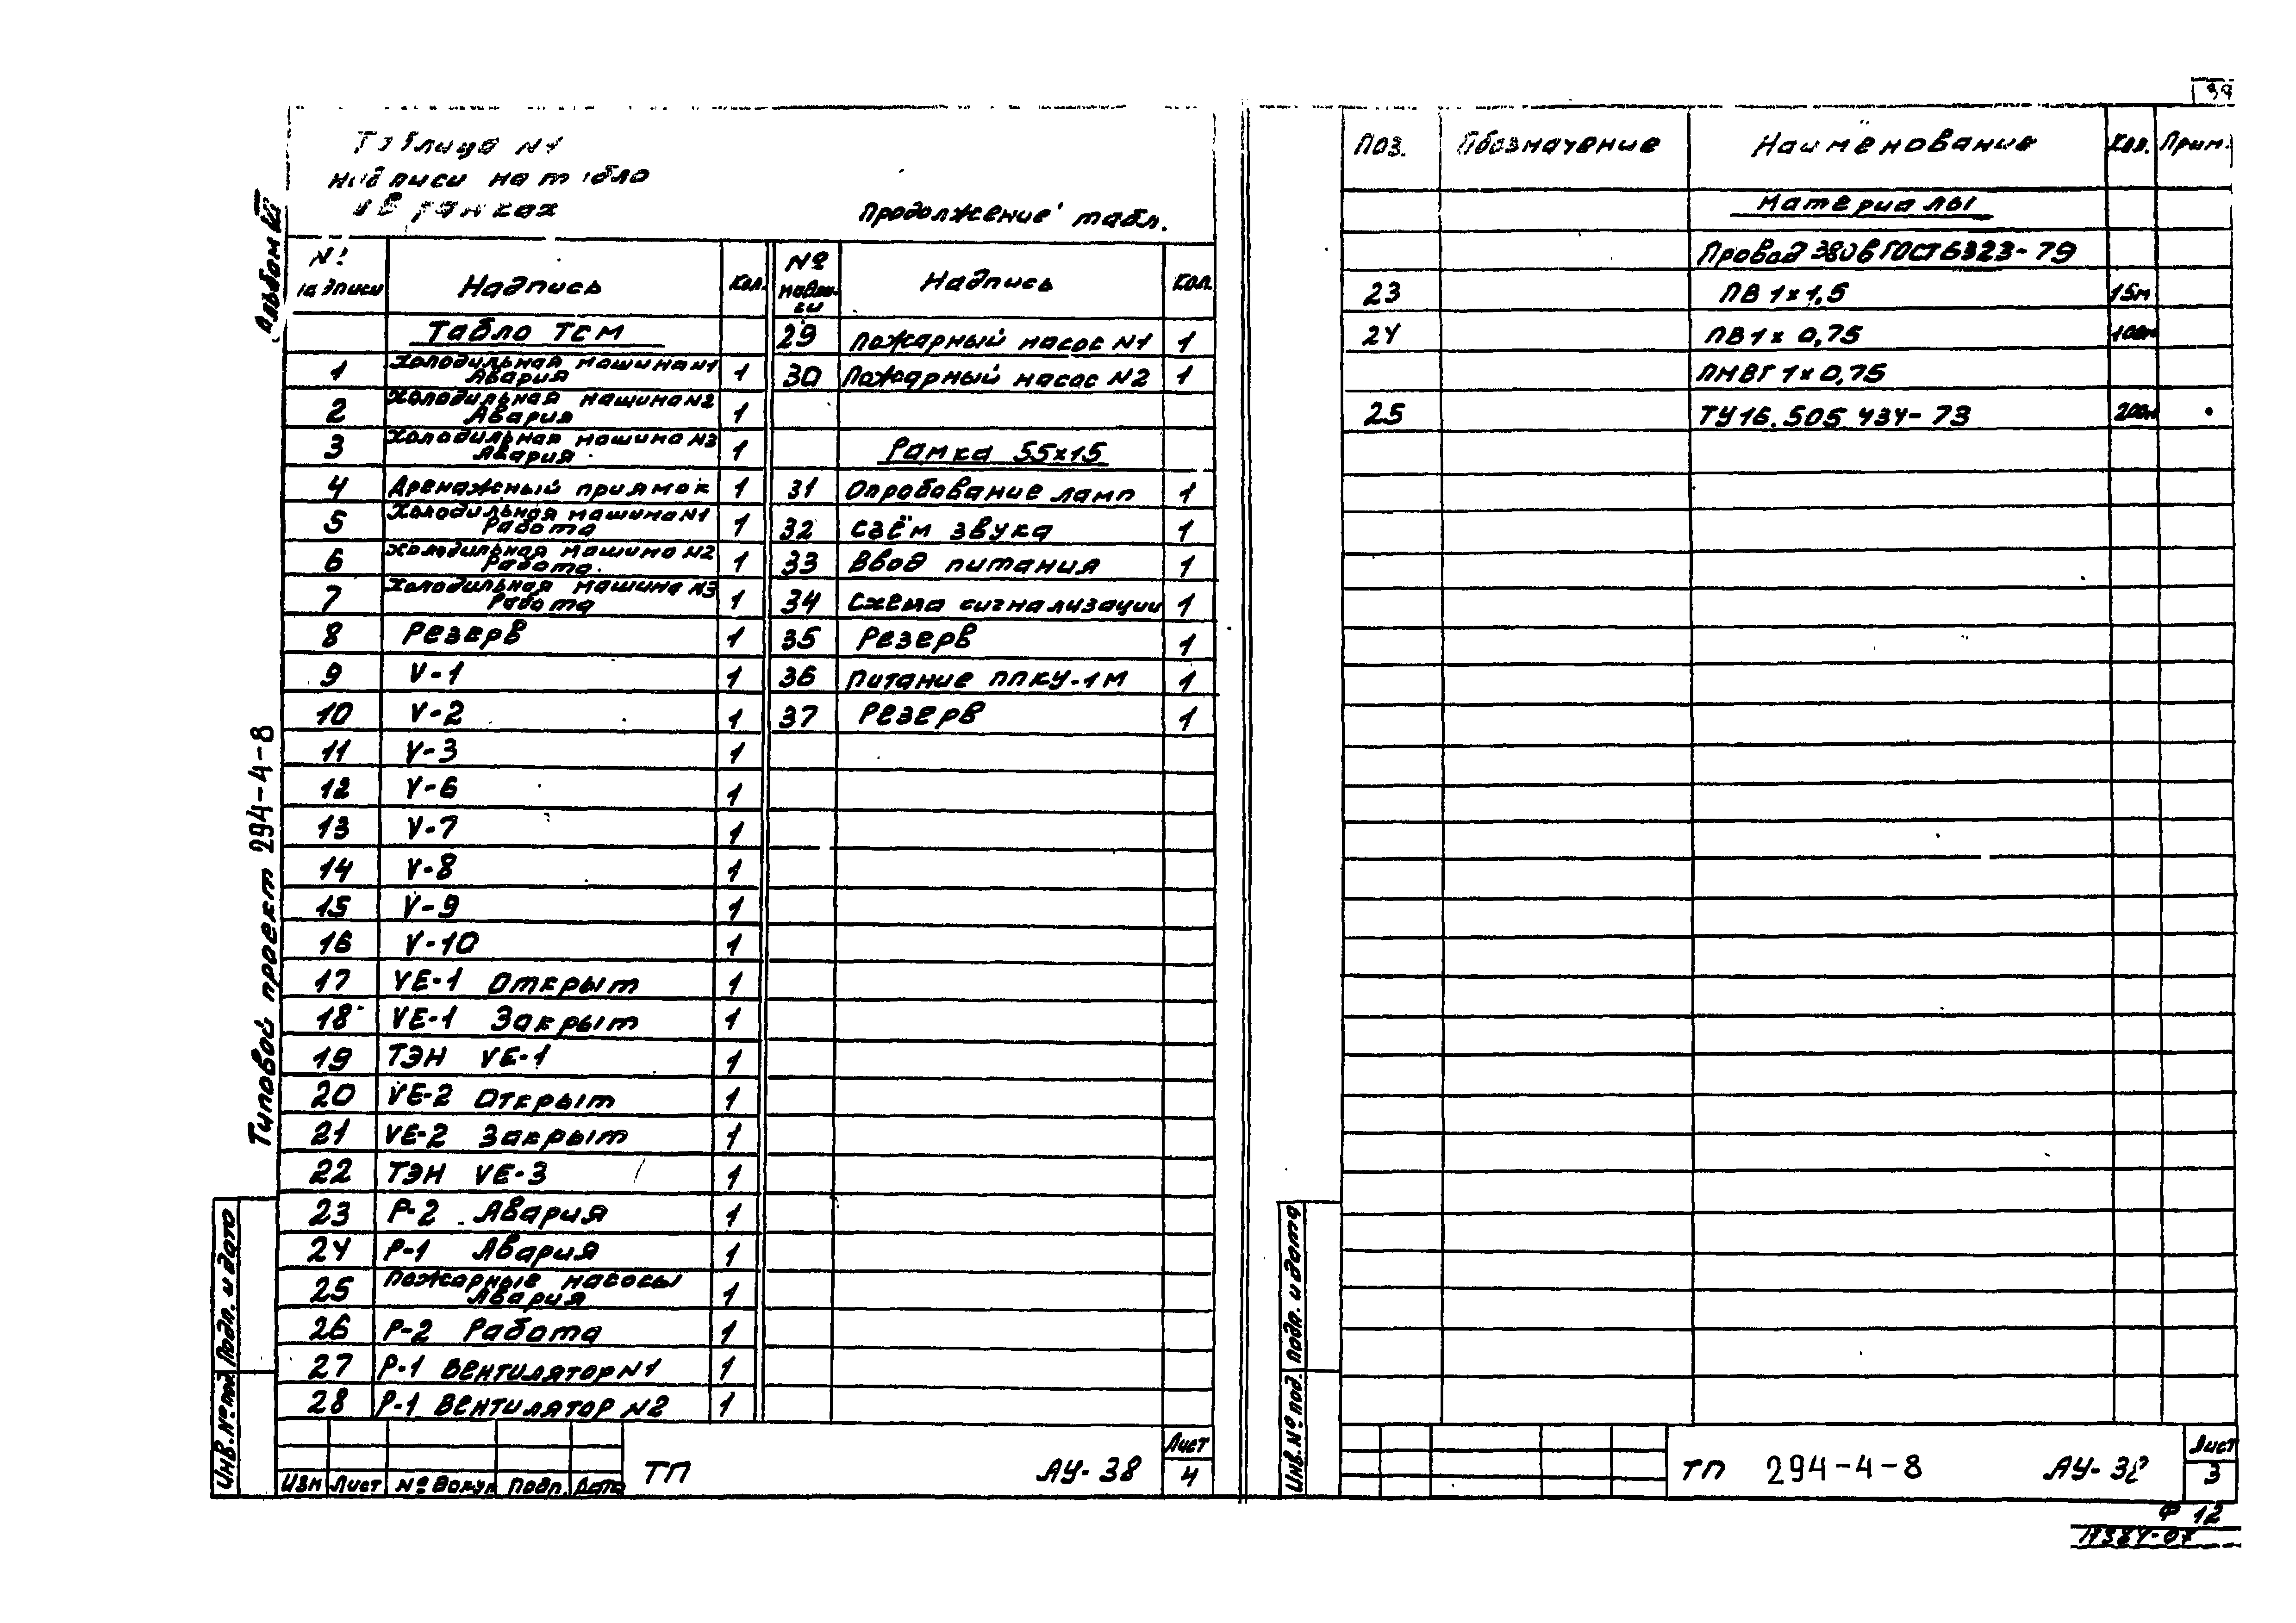 39
Таблица N1
Надписи на табло
и в рамках
Продолжение табл.
№ надписи Надпись Кол.
№ надписи Надпись Кол.
Табло ТСМ
1 Холодильная машина N1 Авария 1
2 Холодильная машина N2 Авария 1
3 Холодильная машина N3 Авария 1
4 Дренажный приямок 1
5 Холодильная машина N1 Работа 1
6 Холодильная машина N2 Работа. 1
7 Холодильная машина N3 Работа 1
8 Резерв 1
9 V-1 1
10 V-2 1
11 V-3 1
12 V-6 1
13 V-7 1
14 V-8 1
15 V-9 1
16 V-10 1
17 VE-1 Открыт 1
18 VE-1 Закрыт 1
19 ТЭН VE-1 1
20 VE-2 Открыт 1
21 VE-2 Закрыт 1
22 ТЭН VE-3 1
23 Р-2 Авария 1
24 Р-1 Авария 1
25 Пожарные насосы Авария 1
26 Р-2 Работа 1
27 Р-1 Вентилятор N1 1
28 Р-1 Вентилятор N2 1
29 Пожарный насос N1 1
30 Пожарный насос N2 1
Рамка 55х15
31 Опробование ламп 1
32 Съём звука 1
33 Ввод питания 1
34 Схема сигнализации 1
35 Резерв 1
36 Питание ППКУ-1М 1
37 Резерв 1
Изм Лист № докум Подп. Дата
ТП АУ-38
Лист
4
Альбом
Типовой проект 294-4-8
Подп. и дата
Инв. № под.
Поз. Обозначение Наименование Кол. Прим.
Материалы
Провод 380в ГОСТ 6323-79
23 ПВ 1х1,5 15м
24 ПВ 1х 0,75 100м
ПМВГ 1х0,75
25 ТУ16.505 434-73 200м
Подп. и дата
Инв. № под.
ТП 294-4-8 АУ-38
Лист
3
Ф 12
17384-07